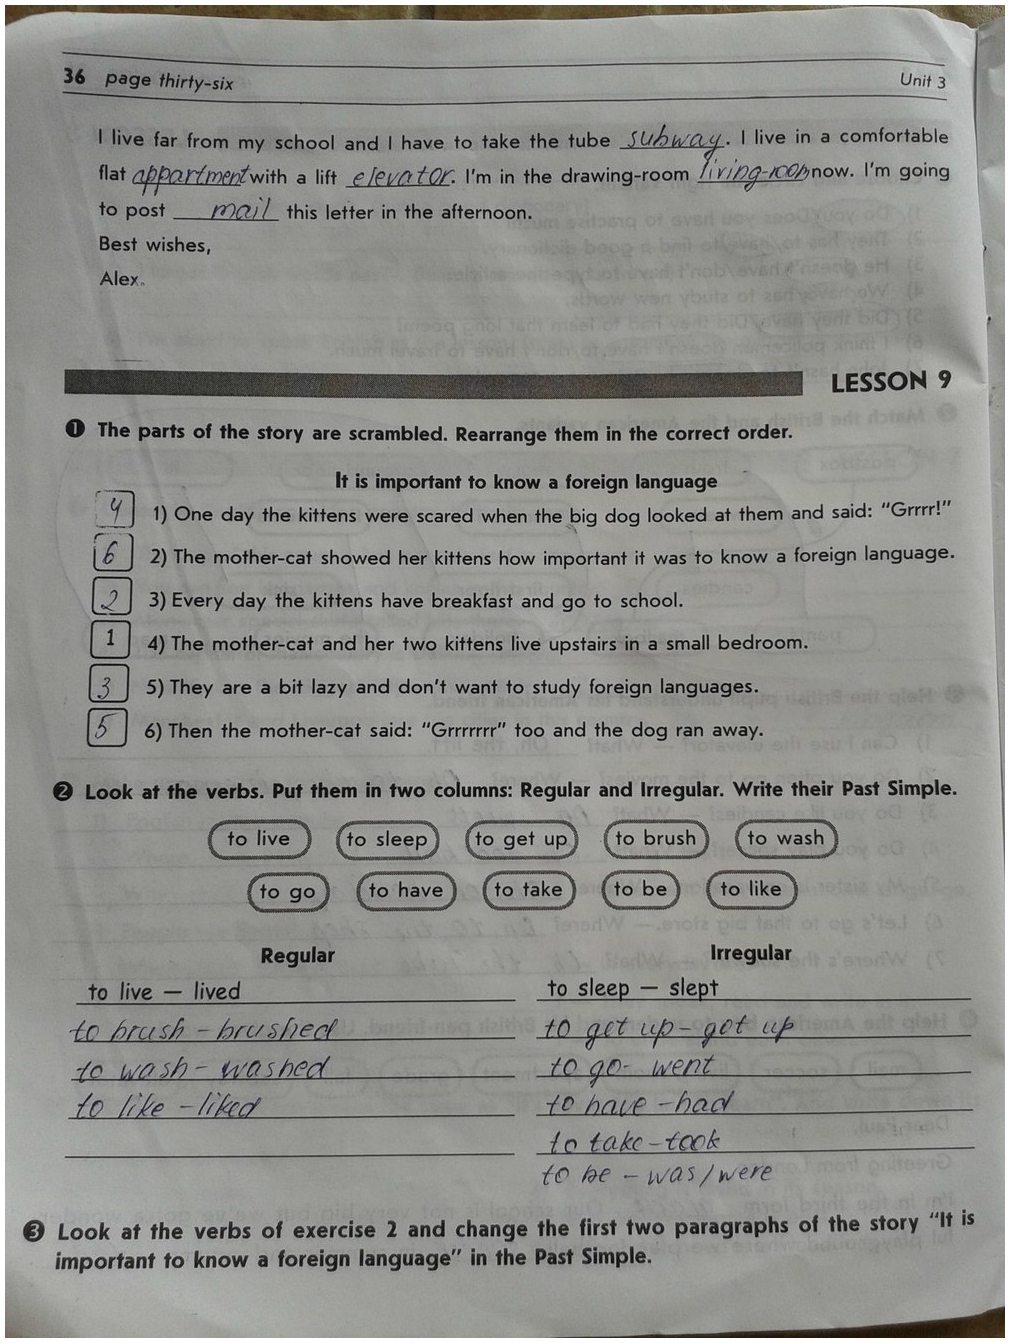 36 page thirty-six Unit 3
I live far from my school and I have to take the tube subway. I live in a comfortable
flat appartment with a lift elevator. I'm in the drawing-room living-room now. I'm going
to post mail this letter in the afternoon.
Best wishes,
Alex.
LESSON 9
1 The parts of the story are scrambled. Rearrange them in the correct order.
It is important to know a foreign language
4 1) One day the kittens were scared when the big dog looked at them and said: "Grrrr!"
6 2) The mother-cat showed her kittens how important it was to know a foreign language.
2 3) Every day the kittens have breakfast and go to school.
1 4) The mother-cat and her two kittens live upstairs in a small bedroom.
3 5) They are a bit lazy and don't want to study foreign languages.
5 6) Then the mother-cat said: "Grrrrrrr" too and the dog ran away.
2 Look at the verbs. Put them in two columns: Regular and Irregular. Write their Past Simple.
to live to sleep to get up to brush to wash
to go to have to take to be to like
Regular Irregular
to live — lived to sleep — slept
to brush - brushed to get up - got up
to wash - washed to go - went
to like - liked to have - had
to take - took
to be - was/were
3 Look at the verbs of exercise 2 and change the first two paragraphs of the story "It is
important to know a foreign language" in the Past Simple.